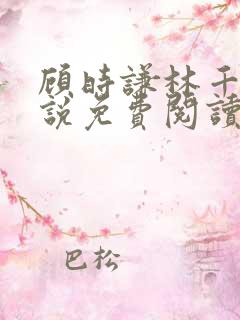 顾時謙林千
說免費閱讀
巴松